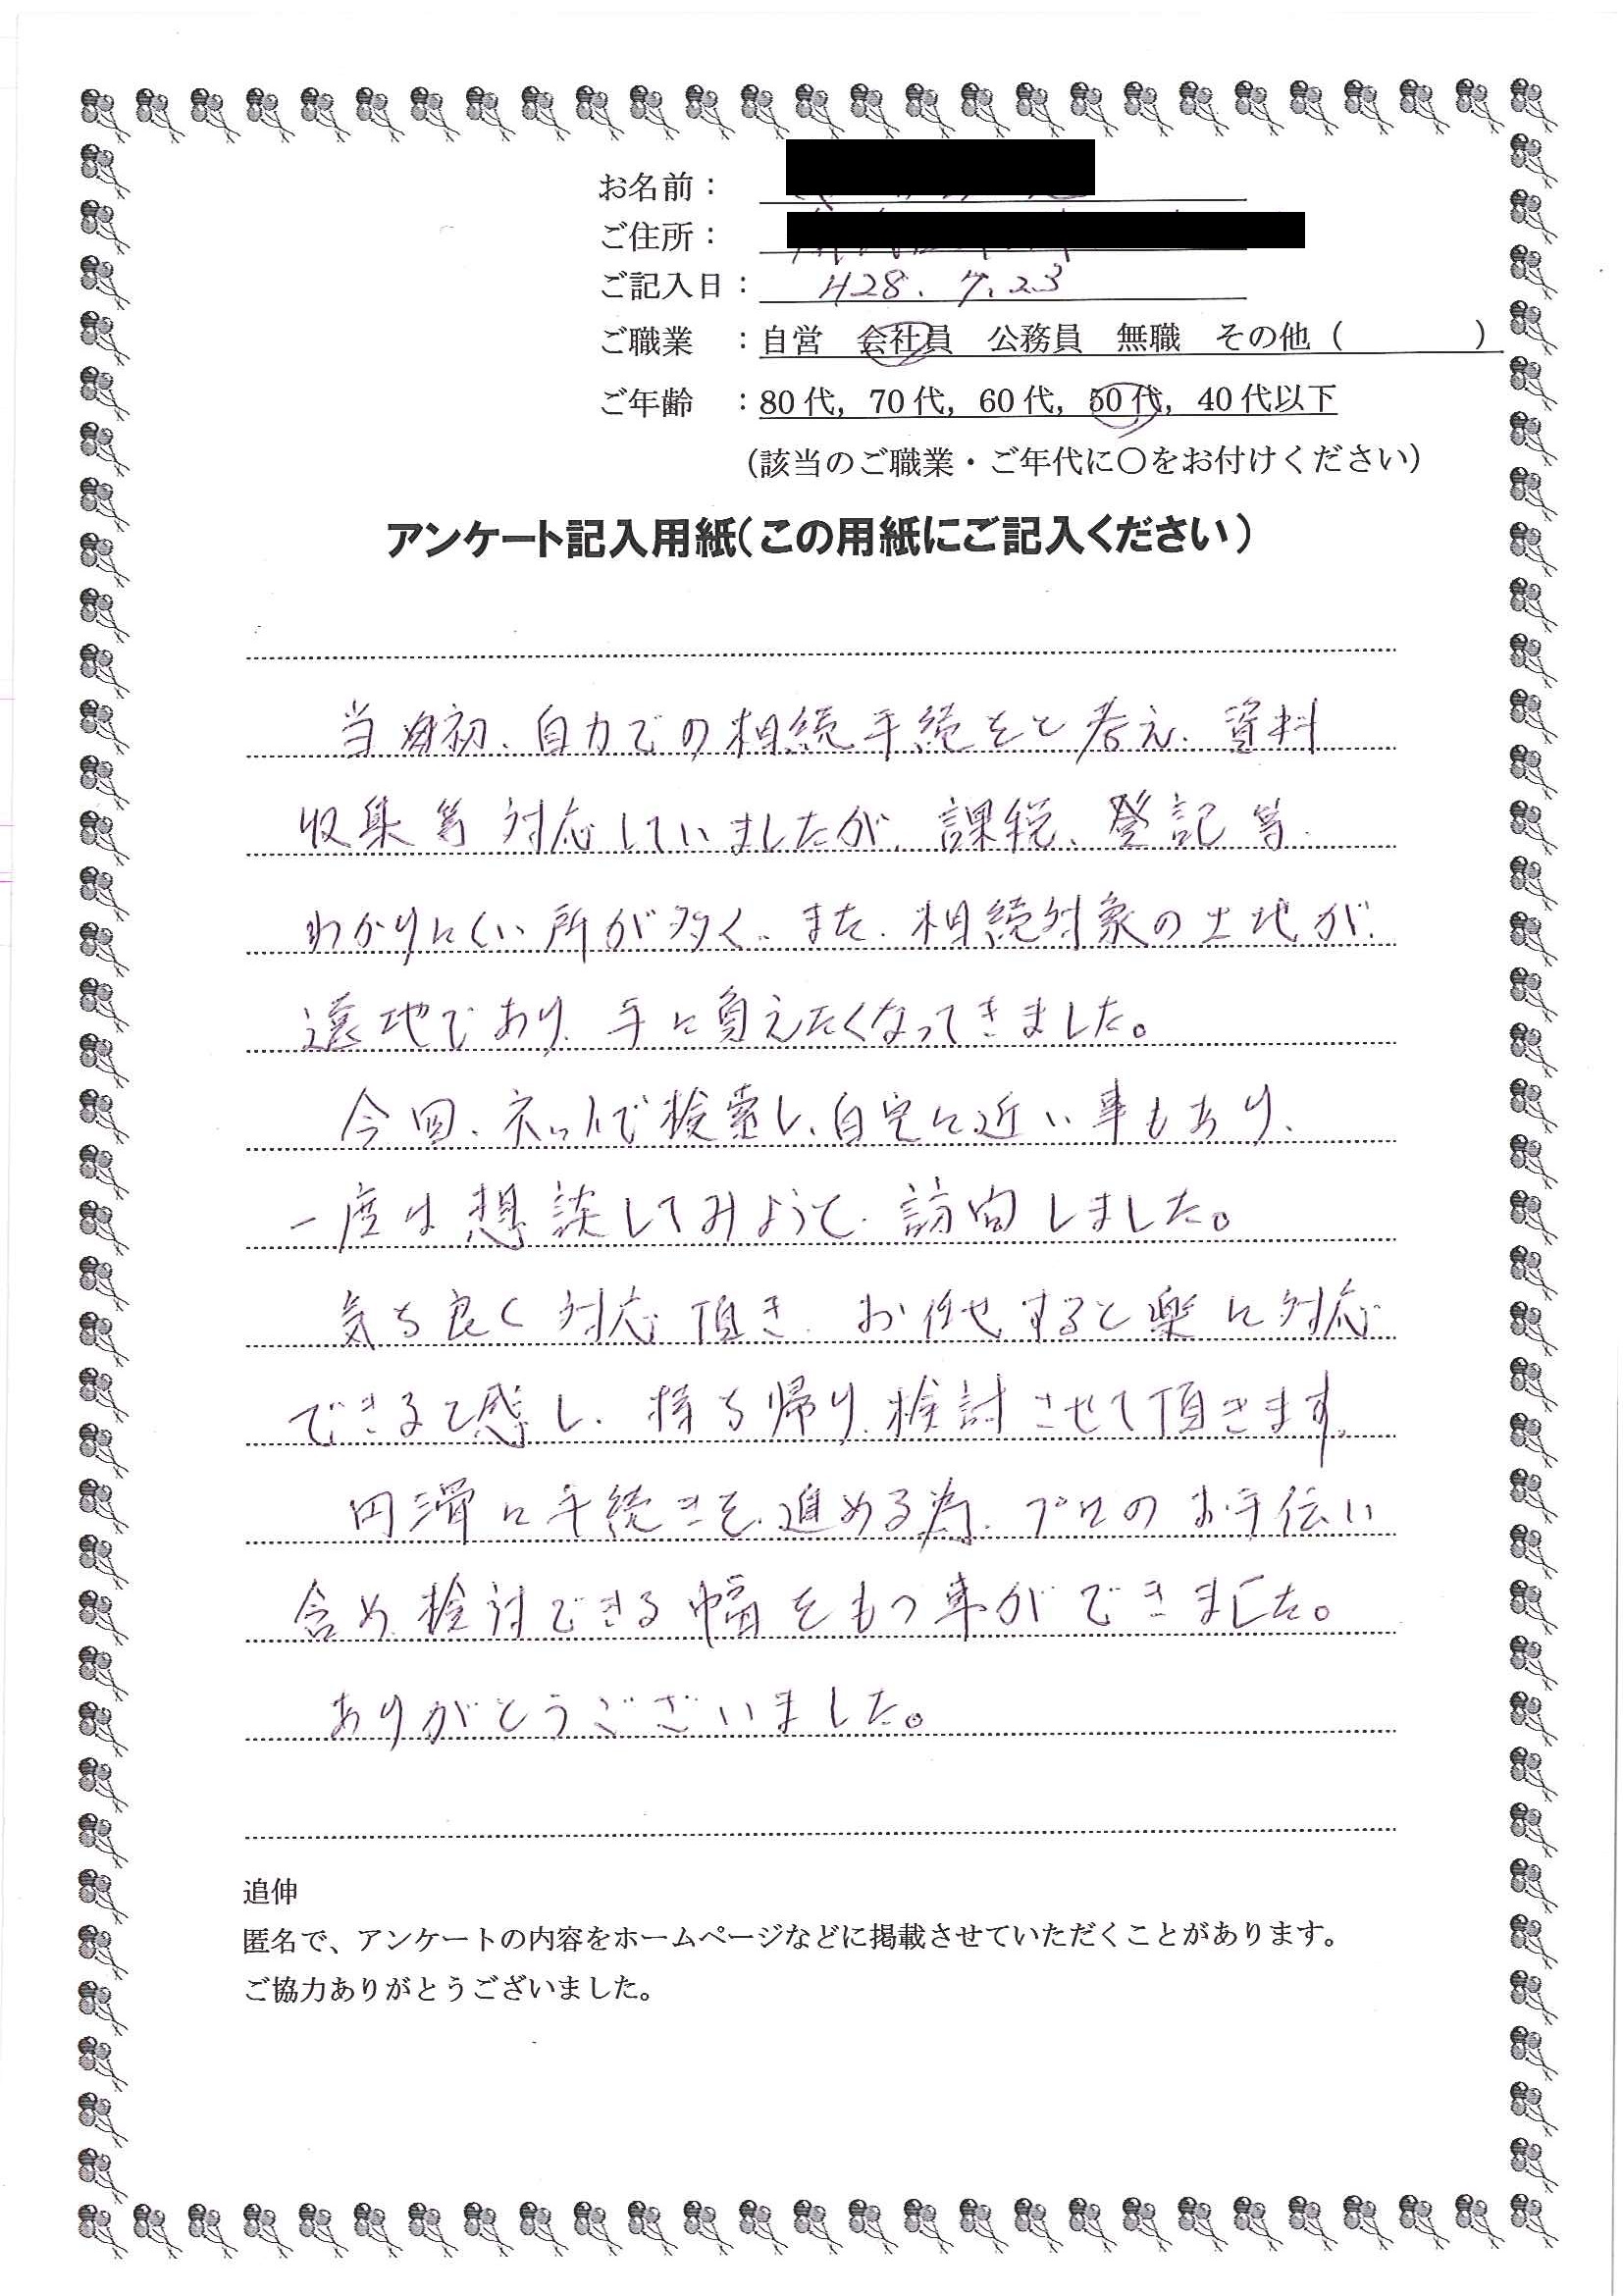 お名前：
ご住所：
ご記入日： H28. 7. 23
ご職業 ：自営 会社員 公務員 無職 その他（ ）
ご年齢 ：80代，70代，60代，50代，40代以下
（該当のご職業・ご年代に〇をお付けください）
アンケート記入用紙（この用紙にご記入ください）
当初、自力での相続手続をと考え、資料
収集等対応していましたが、課税、登記等、
わかりにくい所が多く、また、相続対象の土地が、
遠地であり、手に負えたくなってきました。
今回、ネットで検索し、自宅に近い事もあり、
一度は想談してみようと、訪問しました。
気ち良く対応頂き、お任せすると楽に対応
できると感し、持ち帰り、検討させて頂きます。
円滑に手続きを、進める為、プロのお手伝い
含め、検討できる幅をもつ事ができました。
ありがとうございました。
追伸
匿名で、アンケートの内容をホームページなどに掲載させていただくことがあります。
ご協力ありがとうございました。